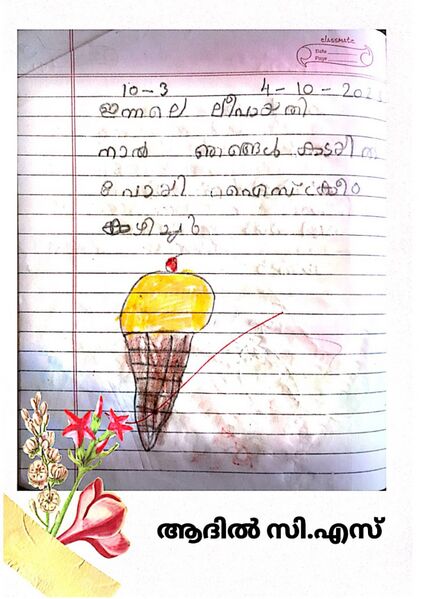 classmate
Date
Page
10-3 4-10-202
ഇന്നലെ ലീപായതി
നാൽ ഞങ്ങൾ കടയിൽ
പോയി ഐസ്ക്രീം
കഴിച്ചു
ആദിൽ സി.എസ്